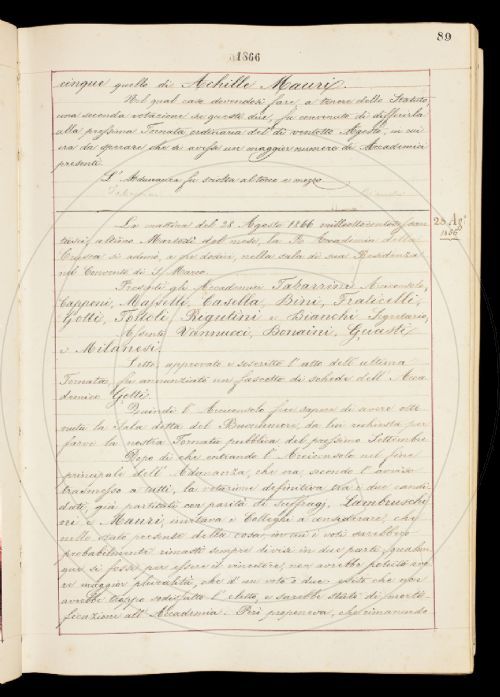 89
1866
cinque quello di Achille Mauri.
Nel qual caso dovendosi fare, a tenore dello Statuto,
una seconda votazione su questi due, fu convenuto di differirla
alla prossima Tornata ordinaria del dì ventotto Agosto, in cui
era da sperare che si avesse un maggior numero di Accademici
presenti.
L'Adunanza fu sciolta al tocco e mezzo.
28 Ag.º
1866
La mattina del 28 Agosto 1866 milleottocentosessan
tasei ultimo Martedì del mese, la R. Accademia della
Crusca si adunò, a ore dodici, nella sala di sua Residenza
nel Convento di S. Marco.
Presenti gli Accademici Tabarrini Arciconsolo,
Capponi, Maffetti, Casella, Bini, Fraticelli,
Gotti, Tortoli, Rigutini e Bianchi Segretario,
Assenti Vannucci, Bonaini, Guasti
e Milanesi.
Letto, approvato e soscritto l'atto dell'ultima
Tornata, fu annunziato un fascetto di schede dell'Acca
demico Gotti.
Quindi l'Arciconsolo fece sapere di avere otte
nuta la Sala detta del Buonumore, da lui richiesta per
farvi la nostra Tornata pubblica del prossimo Settembre
Dopo di che entrando l'Arciconsolo nel fine
principale dell'Adunanza, che era, secondo l'avviso
trasmesso a tutti, la votazione definitiva tra i due candi
dati, già partitati con parità di suffragi, Lambruschi
ni e Mauri, invitava i Colleghi a considerare, che
nello stato presente della cosa, i voti sarebbero
probabilmente rimasti sempre divisi in due parti; qualun
que si fosse per essere il vincitore, non avrebbe potuto ave
re maggior pluralità, che d'un voto o due: esito che non
avrebbe troppo sodisfatto l'eletto, e sarebbe stato di morti
ficazione all'Accademia. Però proponeva, che rimanendo